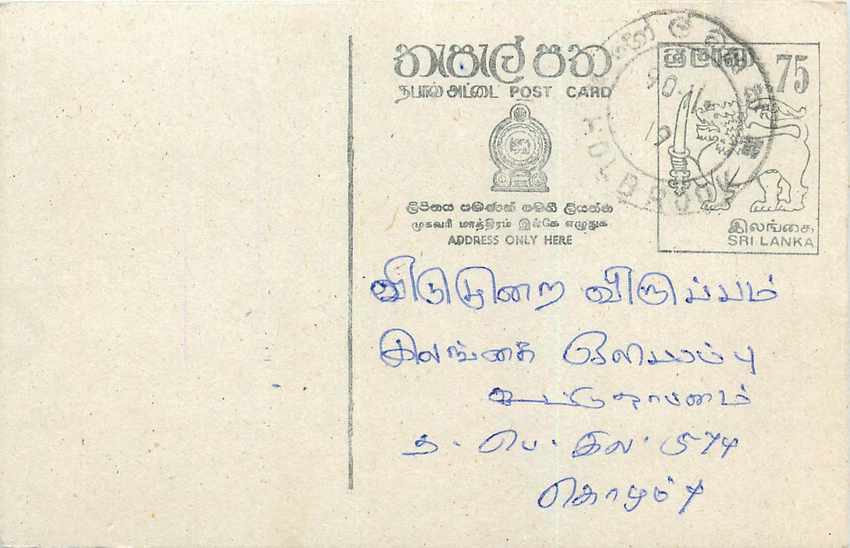 තැපැල් පත
தபால் அட்டை POST CARD
ලිපිනය පමණක් මෙහි ලියන්න
முகவரி மாத்திரம் இங்கே எழுதுக
ADDRESS ONLY HERE
ශ්‍රී ලංකා
75
இலங்கை
SRI LANKA
90
19
HOLBROOK
விடுமுறை விருப்பம்
இலங்கை ஒலிபரப்பு
கூட்டுதாபனம்
த. பெ. இல. 574
கொழும்பு